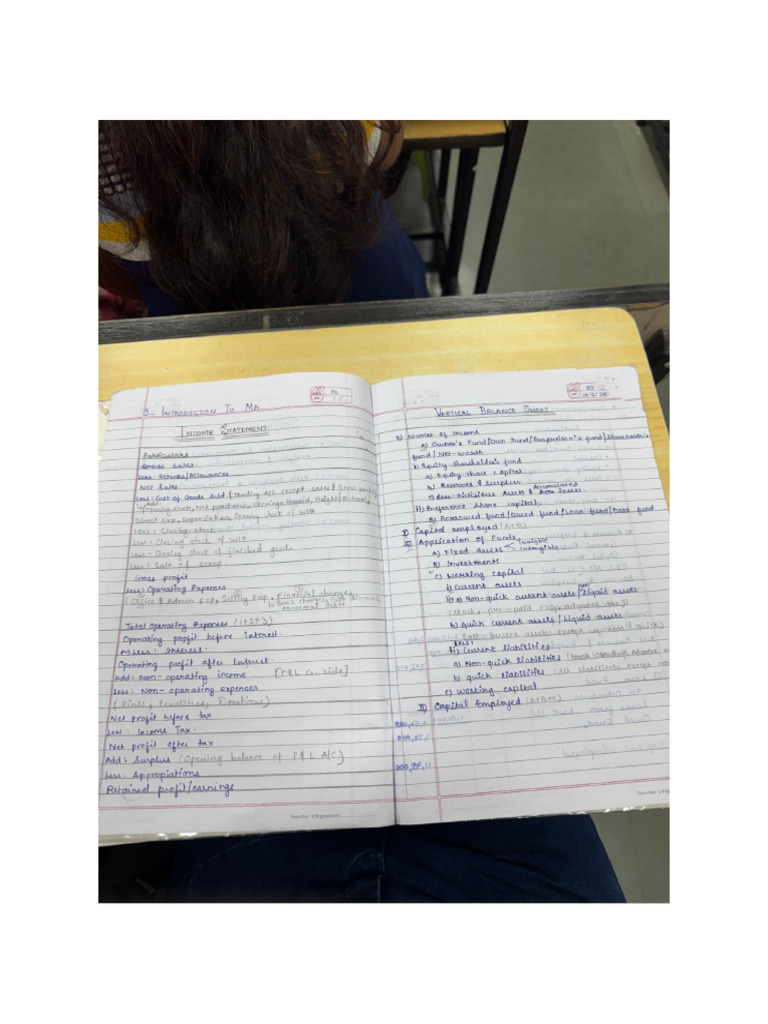 INTRODUCTION TO MA
INCOME STATEMENT
Particulars
Gross Sales
Less: Returns/Allowances
Net Sales
Less: Cost of Goods Sold
Opening stock, Net purchases,
Direct Exp, Depreciation, Opening stock of WIP
Less: Closing stock
Less: Closing stock of WIP
Less: Closing stock of finished goods
Less: Sale of scrap
Gross profit
Less: Operating Expenses
(Office & Admin Exp, Selling Exp, Financial charges
Bank charges,
Total Operating Expenses (1+2+3)
Operating profit before Interest.
Less: Interest.
Operating profit after Interest.
Add: Non-operating income [P&L Cr. side]
Less: Non-operating expenses
(Fines, Penalities, Donations)
Net profit before tax
Less: Income Tax.
Net profit after tax
Add: Surplus (Opening balance of P&L A/C)
Less: Appropiations
Retained profit/earnings
Teacher's Signature
VERTICAL BALANCE SHEET
I) Sources of Income
a) Owner's Fund/Own Fund/Proprietor's fund/Shareholder's
fund/Net-worth
Equity shareholder's fund
a) Equity share capital
b) Reserves & surplus
Accumulated
c) Less: Fictitious Assets & losses
ii) Preference share capital
B) Borrowed fund/Owed fund/Loan fund/Debt fund
Capital employed (A+B)
II) Application of Funds
A) Fixed assets
Intangible
B) Investment
C) Working capital
i) Current assets
a) Non-quick current assets/non liquid assets
(stock, pre-paid exp, advance tax)
b) Quick current assets/liquid assets
(current assets except
Less:
ii) Current liabilities
a) Non-quick liabilities
b) quick liabilities (All liabilities except
c) Working capital
Capital Employed (A+B+C)
Teacher's